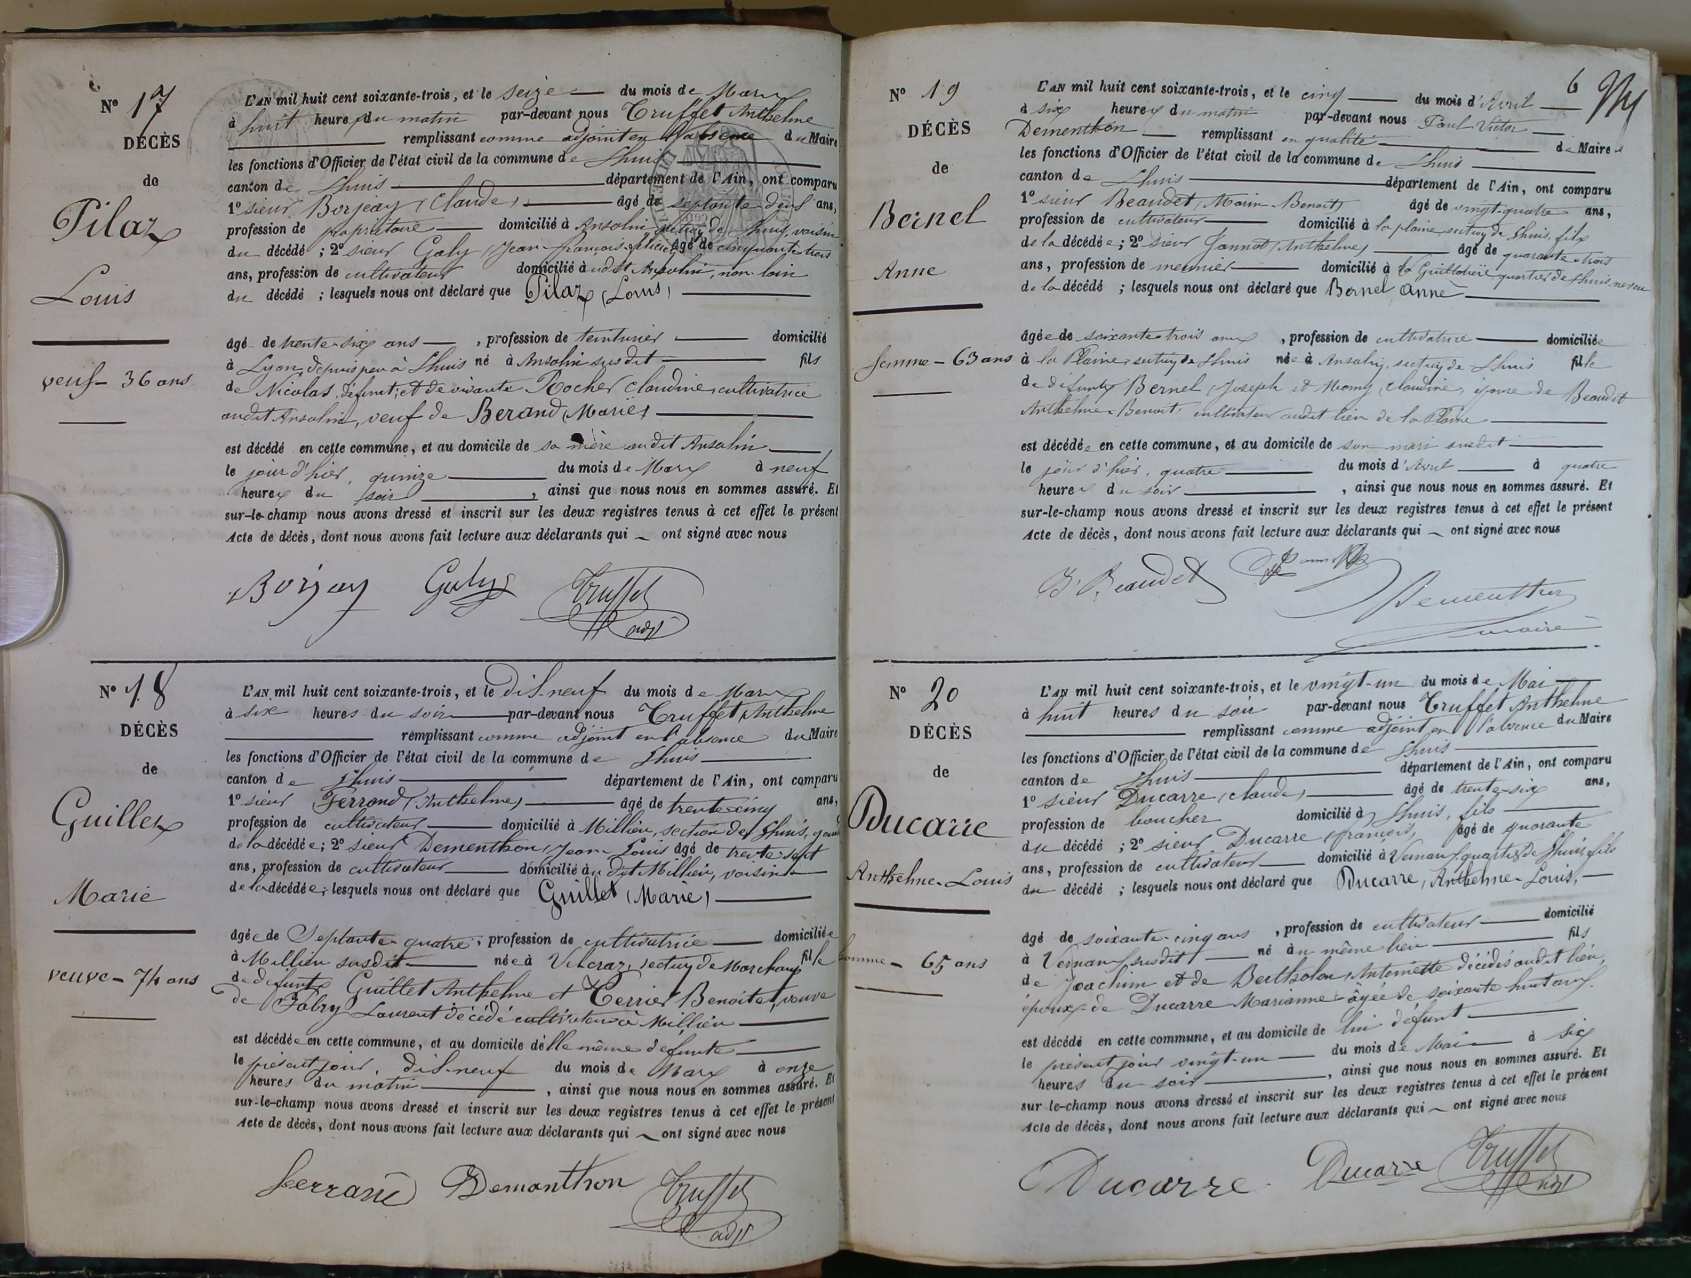 N° 17
DÉCÈS
de
Pilaz
Louis
veuf - 36 ans
L'AN mil huit cent soixante-trois, et le seize du mois de Mars
à huit heures du matin par-devant nous Truffet Anthelme
remplissant comme adjoint en l'absence du Maire
les fonctions d'Officier de l'état civil de la commune de Lhuis
canton de Lhuis département de l'Ain, ont comparu
1° sieur Borjeay (Claude) âgé de septante deux ans,
profession de propriétaire domicilié à Ansolin section de Lhuis, voisin
du décédé ; 2° sieur Galy (Jean-françois âgé de cinquante trois
ans, profession de cultivateur domicilié à udit Ansolin, non loin
du décédé ; lesquels nous ont déclaré que Pilaz (Louis)
âgé de trente-six ans, profession de teinturier domicilié
à Lyon, depuis peu à Lhuis né à Ansolin susdit fils
de Nicolas, défunt, et de vivante Rocher Claudine, cultivatrice
audit Ansolin, veuf de Berand (Marie)
est décédé en cette commune, et au domicile de sa mère audit Ansolin
le jour d'hier, quinze du mois de Mars à neuf
heures du soir, ainsi que nous nous en sommes assuré. Et
sur-le-champ nous avons dressé et inscrit sur les deux registres tenus à cet effet le présent
Acte de décès, dont nous avons fait lecture aux déclarants qui ont signé avec nous
Borjeay Galy Truffet
adjt
N° 18
DÉCÈS
de
Guillet
Marie
veuve - 74 ans
L'AN mil huit cent soixante-trois, et le dix-neuf du mois de Mars
à six heures du soir par-devant nous Truffet Anthelme
remplissant comme adjoint en l'absence du Maire
les fonctions d'Officier de l'état civil de la commune de Lhuis
canton de Lhuis département de l'Ain, ont comparu
1° sieur Ferrand (Anthelme) âgé de trente-cinq ans,
profession de cultivateur domicilié à Millieu, section de Lhuis,
de la décédée ; 2° sieur Dementhon, Jean-Louis âgé de trente-sept
ans, profession de cultivateur domicilié au dit Millieu, voisin
de la décédée ; lesquels nous ont déclaré que Guillet (Marie)
âgée de Septante-quatre, profession de cultivatrice domiciliée
à Millieu susdit née à section de Marchamp fille
de défunts Guillet Anthelme et Terrier Benoite, veuve
de Fabry Laurent décédé cultivateur à Millieu
est décédée en cette commune, et au domicile d'elle même défunte
le présent jour, dix-neuf du mois de Mars à onze
heures du matin, ainsi que nous nous en sommes assuré. Et
sur-le-champ nous avons dressé et inscrit sur les deux registres tenus à cet effet le présent
Acte de décès, dont nous avons fait lecture aux déclarants qui ont signé avec nous
Ferrand Demonthon Truffet
adjt
6
N° 19
DÉCÈS
de
Bernel
Anne
femme - 63 ans
L'AN mil huit cent soixante-trois, et le cinq du mois d'Avril
à six heures du matin par-devant nous Paul Victor
Dementhon remplissant en qualité de Maire
les fonctions d'Officier de l'état civil de la commune de Lhuis
canton de Lhuis département de l'Ain, ont comparu
1° sieur Beaudet, Marin-Benoit, âgé de vingt-quatre ans,
profession de cultivateur domicilié à la plaine section de Lhuis, fils
de la décédée ; 2° sieur Jannet (Anthelme) âgé de quarante-trois
ans, profession de meunier domicilié à la Guillotière quartier de Lhuis neveu
de la décédé ; lesquels nous ont déclaré que Bernel Anne
âgée de soixante-trois ans, profession de cultivatrice domiciliée
à la Plaine section de Lhuis née à Ansolin, section de Lhuis fille
de défunts Bernel, Joseph et Momy Claudine, épouse de Beaudet
Anthelme-Benoit, cultivateur audit lieu de la Plaine
est décédée en cette commune, et au domicile de son mari susdit
le jour d'hier, quatre du mois d'Avril à quatre
heures du soir, ainsi que nous nous en sommes assuré. Et
sur-le-champ nous avons dressé et inscrit sur les deux registres tenus à cet effet le présent
Acte de décès, dont nous avons fait lecture aux déclarants qui ont signé avec nous
Beaudet
Dementhon
maire
N° 20
DÉCÈS
de
Ducarre
Anthelme-Louis
homme - 65 ans
L'AN mil huit cent soixante-trois, et le vingt-un du mois de Mai
à huit heures du soir par-devant nous Truffet Anthelme
remplissant comme adjoint en l'absence du Maire
les fonctions d'Officier de l'état civil de la commune de Lhuis
canton de Lhuis département de l'Ain, ont comparu
1° sieur Ducarre (Claude) âgé de trente-six ans,
profession de boucher domicilié à Lhuis, fils
du décédé ; 2° sieur Ducarre, françois, âgé de quarante
ans, profession de cultivateur domicilié à Vernan, quartier de Lhuis fils
du décédé ; lesquels nous ont déclaré que Ducarre, Anthelme-Louis,
âgé de soixante-cinq ans, profession de cultivateur domicilié
à Vernan susdit né au même lieu fils
de Joachim et de Bertholon Antoinette décédés audit lieu,
époux de Ducarre Marianne âgée de soixante huit ans.
est décédé en cette commune, et au domicile de lui défunt
le présent jour vingt-un du mois de Mai à six
heures du soir, ainsi que nous nous en sommes assuré. Et
sur-le-champ nous avons dressé et inscrit sur les deux registres tenus à cet effet le présent
Acte de décès, dont nous avons fait lecture aux déclarants qui ont signé avec nous
Ducarre Ducarre Truffet
adjt